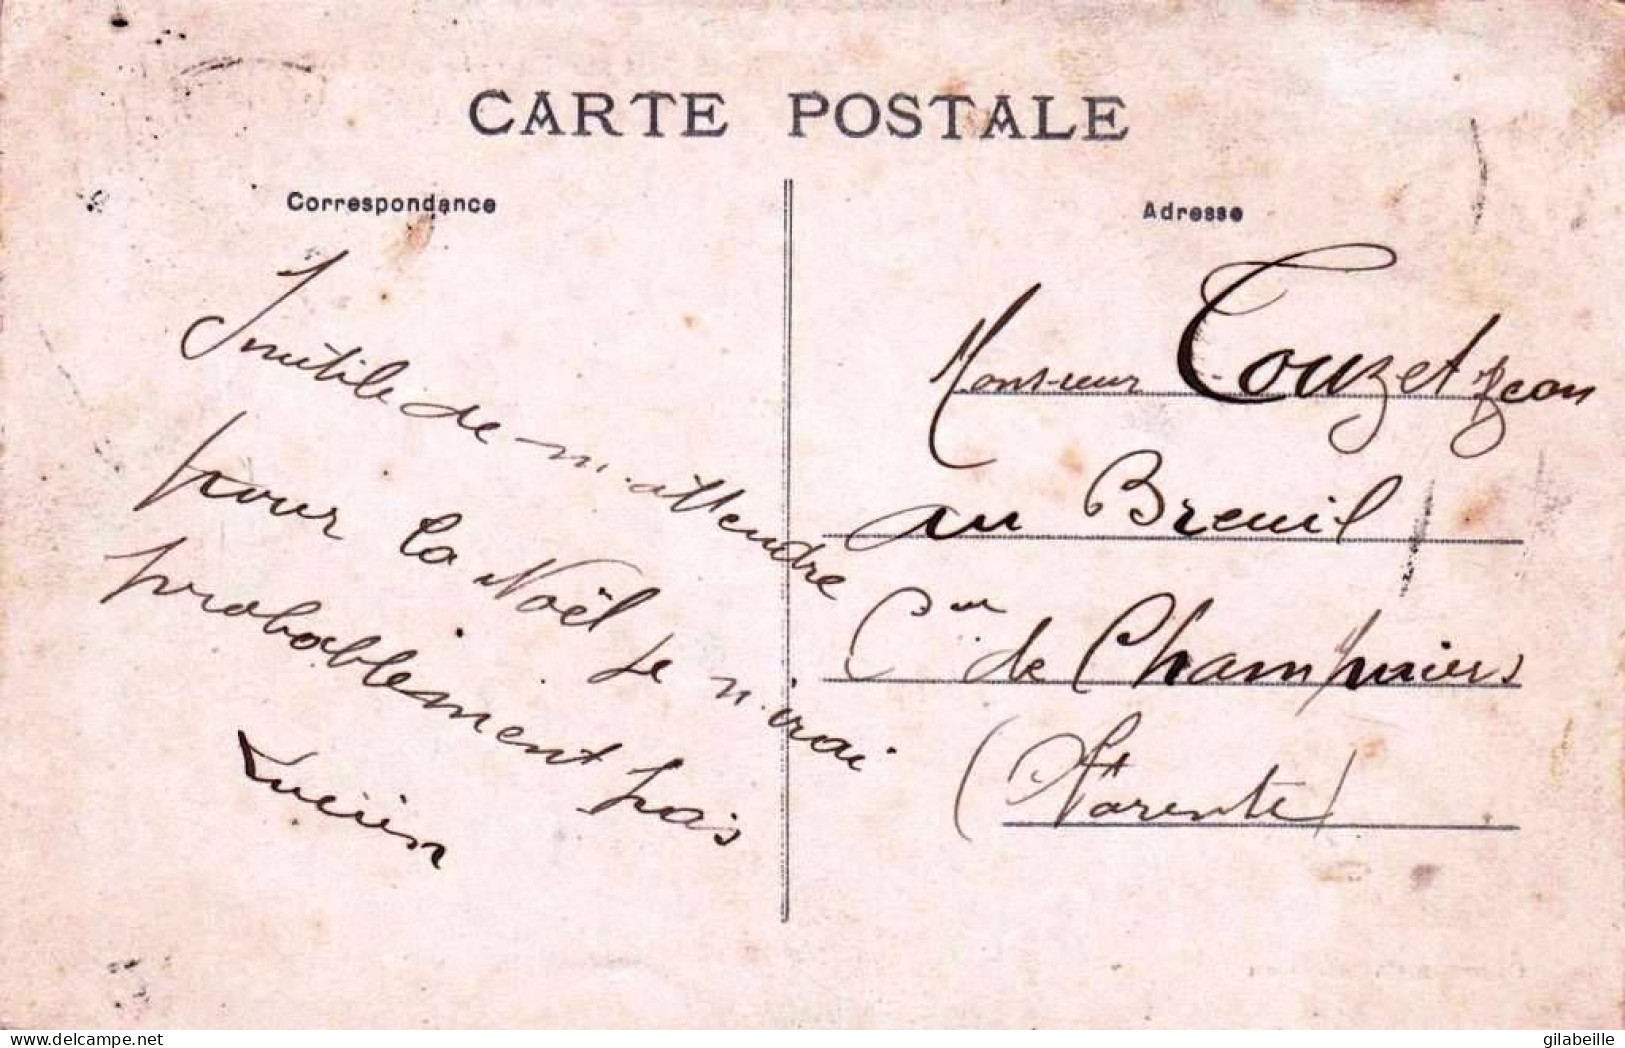 CARTE POSTALE
Correspondance
Inutile de m'attendre
pour la Noël je n'irai
probablement pas
Lucien
Adresse
Monsieur Touzet Jean
au Breuil
Cne de Champniers
(Charente)
delcampe.net
gilabeille